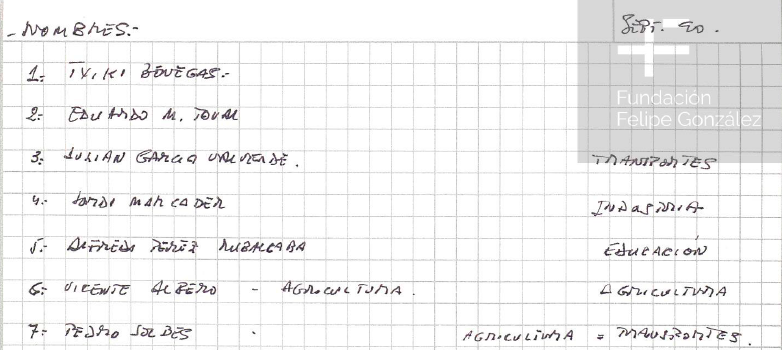 - NOMBRES.- SEPT. 90.
Fundación
Felipe González
1.- TXIKI BENEGAS.-
2.- EDUARDO M. TOVAL
3.- JULIAN GARCIA VALVERDE. TRANSPORTES
4.- JORDI MARCADER INDUSTRIA
5.- ALFREDO PEREZ RUBALCABA EDUCACIÓN
6.- VICENTE ALBERO - AGRICULTURA. AGRICULTURA
7.- PEDRO SOLBES . AGRICULTURA = TRANSPORTES.